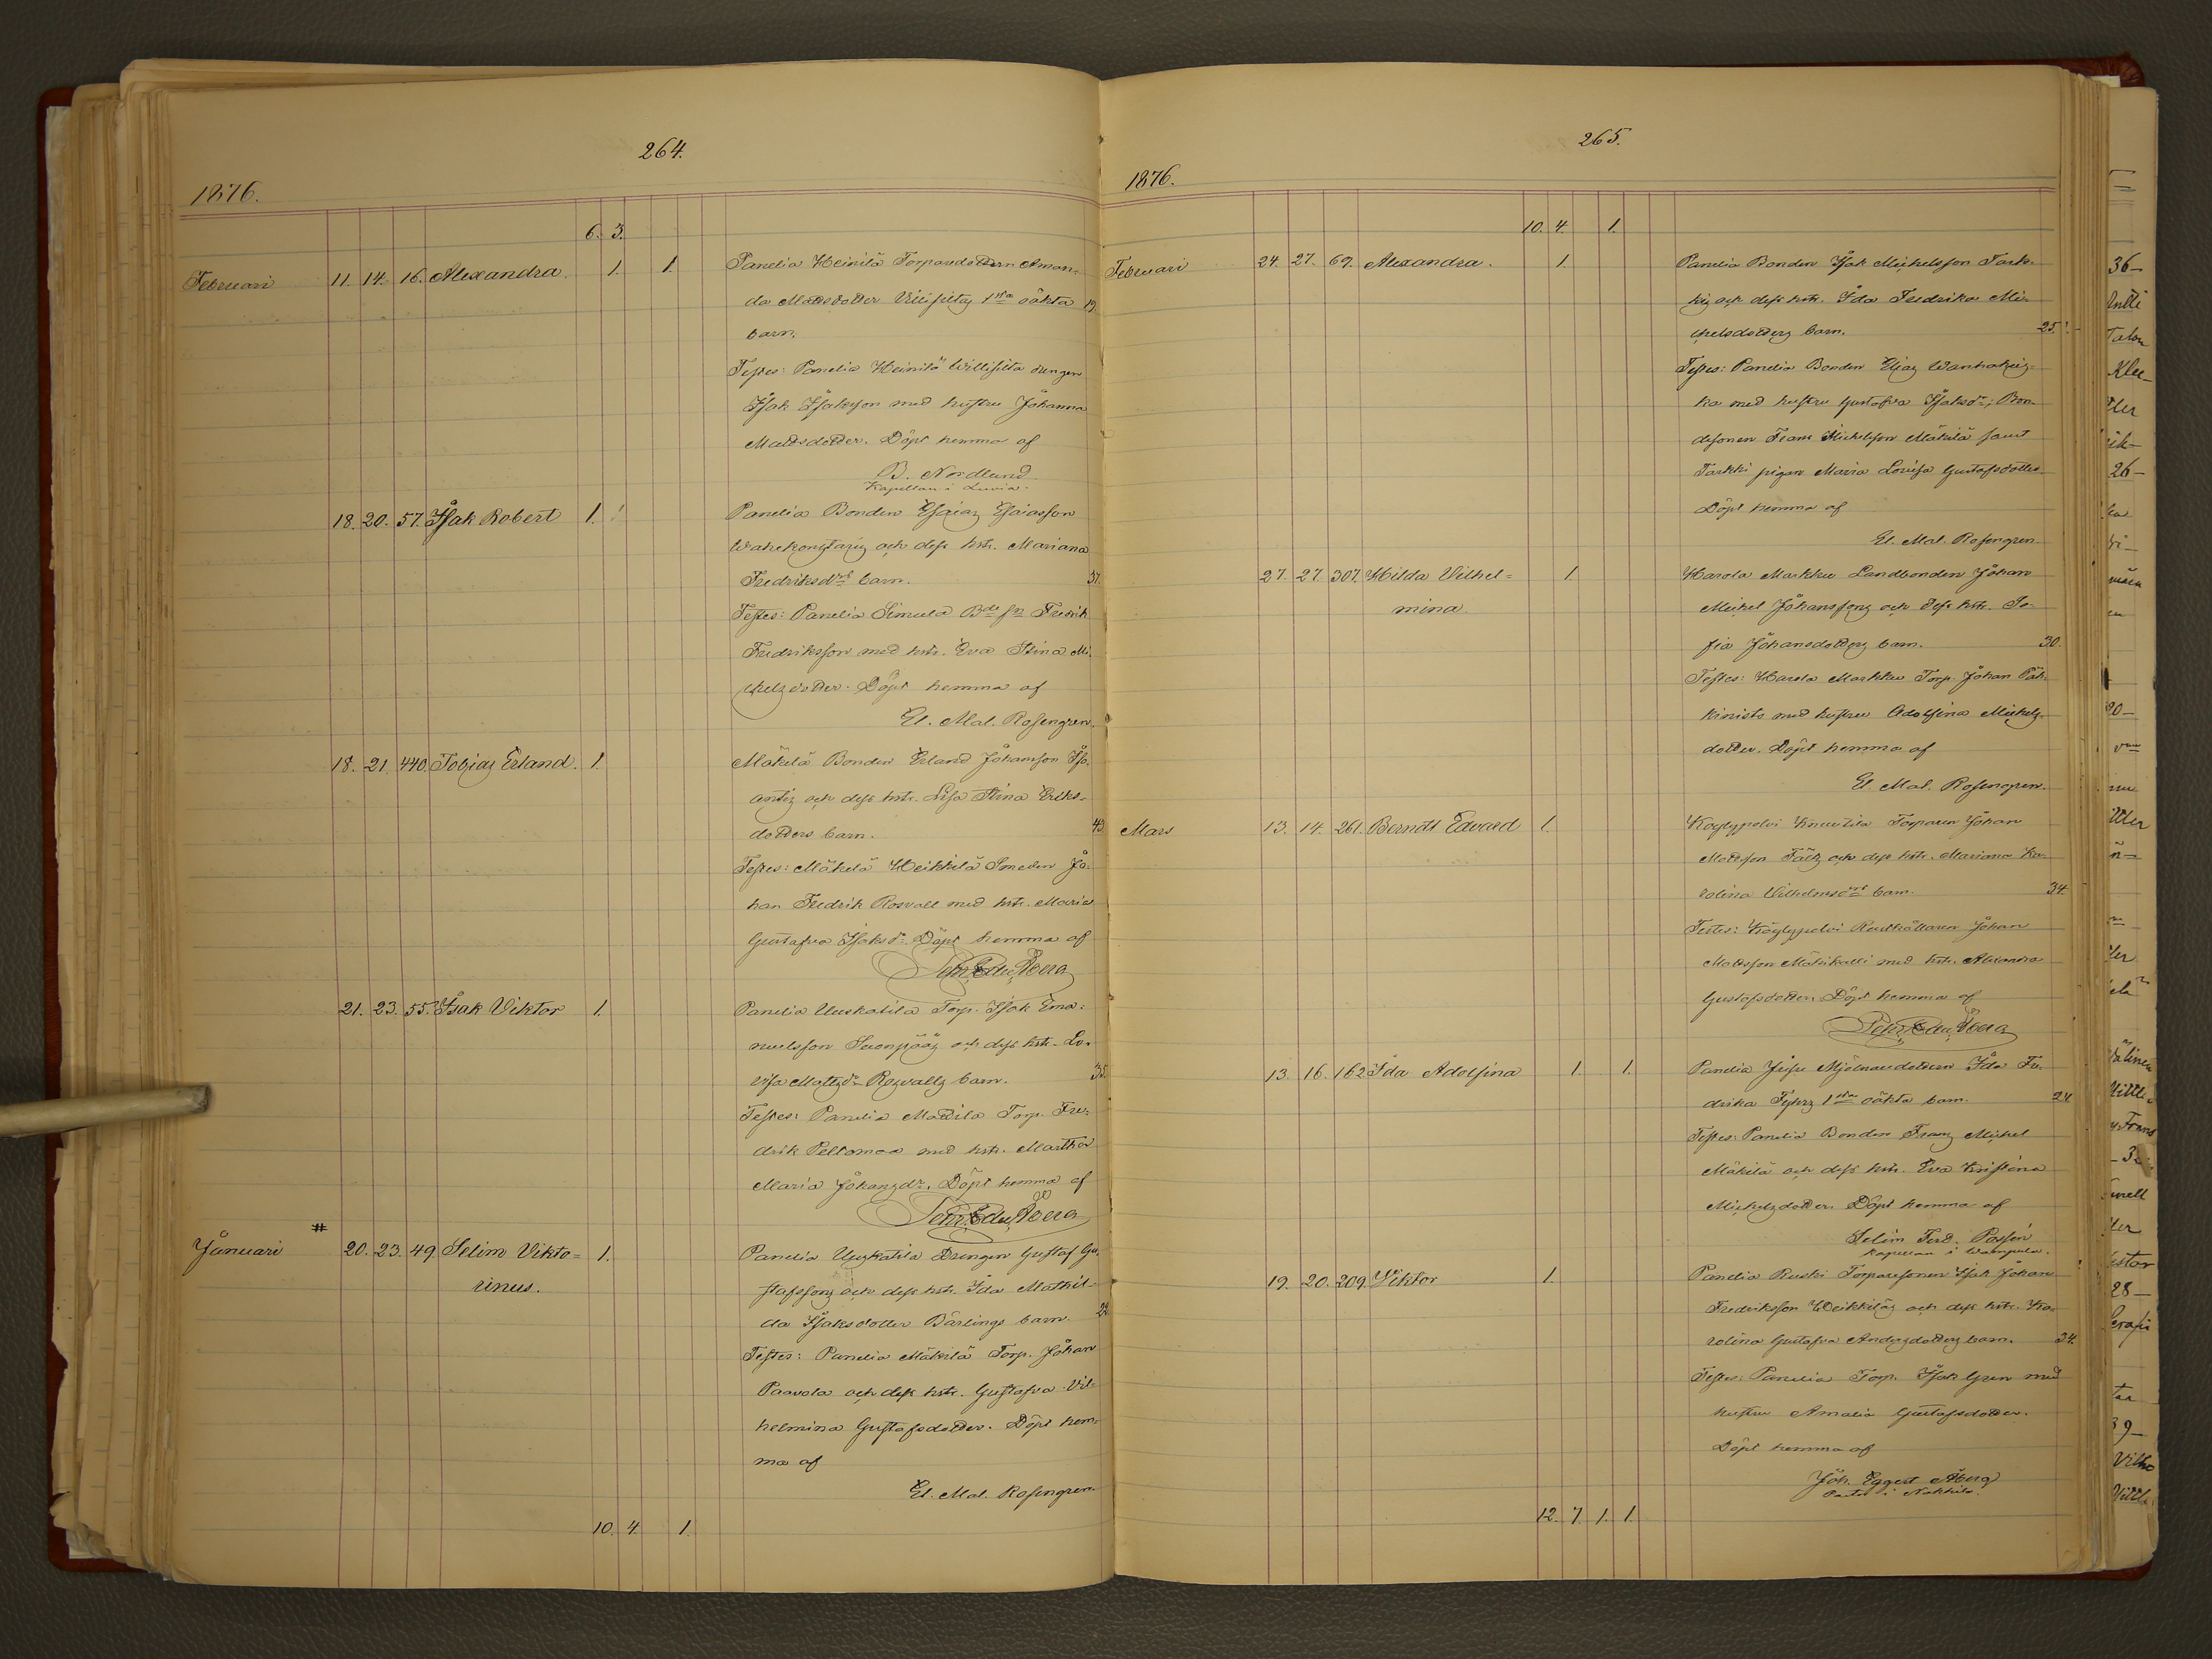 264.
1876.
6. 3.
Februari 11. 14. 16. Alexandra. 1. 1. Panelia Heinilä Torparedottern Aman-
da Mattsdotter 1sta oäkta 19.
barn.
Testes: Panelia Heinilä Willisilta drengen
Isak Isaksson med hustru Johanna
Mattsdotter. Döpt hemma af
B. Nordlund
Kapellan i Luvia.
18. 20. 57. Isak Robert 1. Panelia Bonden Esaias Esaiasson
och dess hstr. Mariana
Fredriksdrs barn. 37.
Testes: Panelia Simula Bde sn Fredrik
Fredriksson med hstr. Eva Stina Mi-
chelsdotter. Döpt hemma af
El. Mal. Rosengren.
18. 21. 440. Tobias Erland. 1. Mäkelä Bonden Erland Johansson Iso-
anttis och dess hstr. Lisa Stina Eriks-
dotters barn. 43.
Testes: Mäkelä Heikkilä Smeden Jo-
han Fredrik Rosvall med hstr. Maria
Gustafva Isaksdr. Döpt hemma af
21. 23. 55. Isak Viktor 1. Panelia Uuskatila Torp. Isak Ema-
nuelsson och dess hstr. Lo-
visa Mattsdr Rosvalls barn. 35.
Testes: Panelia Mattila Torp. Fre-
drik Peltomaa med hstr. Martha
Maria Johansdr. Döpt hemma af
#
Januari 20. 23. 49 Selim Vikto- 1. Panelia Uuskatila Drengen Gustaf Gu-
rinus. stafssons och dess hstr. Ida Mathil-
da Isaksdotter Bärlings barn. 22.
Testes: Panelia Mäkilä Torp. Johan
Paavola och dess hstr. Gustafva Vil-
helmina Gustafsdotter. Döpt hem-
ma af
El. Mal. Rosengren.
10. 4. 1.
265.
1876.
10. 4. 1.
Februari 24. 27. 69. Alexandra. 1. Panelia Bonden Isak Michelsson Tark-
kis och dess hstr. Ida Fredrika Mi-
chelsdotters barn. 25.
Testes: Panelia Bonden Elias
ka med hustru Gustafva Isaksdr; Bon-
desonen Frans Michelsson Mäkilä samt
Tarkki pigan Maria Lovisa Gustafsdotter
Döpt hemma af
El. Mal. Rosengren.
27. 27. 307. Hilda Vilhel- 1. Harola Markku Landbonden Johan
mina Michel Johanssons och dess hstr. So-
fia Johansdotters barn. 30.
Testes: Harola Markku Torp. Johan Päh-
kinistö med hustru Adolfina Michels-
dotter. Döpt hemma af
El. Mal. Rosengren.
Mars 13. 14. 261. Berndt Edvard 1. Köylypolvi Knuutila Torparen Johan
Mattsson Fälts och dess hstr. Mariana Ka-
rolina Vilhelmsdrs barn. 34.
Testes: Köylypolvi Rusthållaren Johan
Mattsson Mäkikalli med hstr. Alexandra
Gustafsdotter. Döpt hemma af
13. 16. 162. Ida Adolfina 1. 1. Panelia Mjölnaredottern Ida Fre-
drika 1sta oäkta barn. 24.
Testes: Panelia Bonden Frans Michel
Mäkilä och dess hstr. Eva Kristina
Michelsdotter. Döpt hemma af
Selim Ferd. Possén
Kapellan i Wampula.
19. 20. 209. Viktor 1. Panelia Ruski Torparesonen Isak Johan
Fredriksson Heikkiläs och dess hstr. Ka-
rolina Gustafva Andersdotters barn. 34.
Testes: Panelia Torp. Isak Gren med
hustru Amalia Gustafsdotter.
Döpt hemma af
Joh. Eggert Åberg
Pastor i Nakkila.
12. 7. 1. 1.